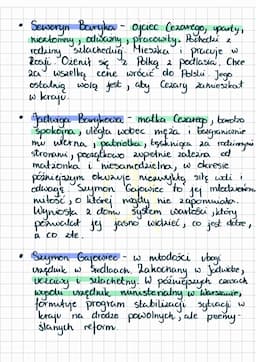 • Seweryn Baryka - ojciec Cezarego, uparty,
niezłomny, odważny, pracowity. Pochodzi z
rodziny szlacheckiej. Mieszka i pracuje w
Rosji. Ożenił się z Polką z Podlasia. Chce
za wszelką cenę wrócić do Polski. Jego
ostatnią wolą jest, aby Cezary zamieszkał
w kraju.
• Jadwiga Barykowa - matka Cezarego, bardzo
spokojna, uległa wobec męża i bezgranicznie
mu wierna, patriotka, tęskniąca za rodzinnymi
stronami, początkowo zupełnie zależna od
małżonka i niesamodzielna, w okresie
późniejszym okazuje niezwykłą siłę woli i
odwagę. Szymon Gajowiec to jej młodzieńcza
miłość, o której nigdy nie zapomniała.
Wyniosła z domu system wartości, który
pozwalał jej jasno widzieć, co jest dobre,
a co złe.
• Szymon Gajowiec - w młodości ubogi
urzędnik w Siedlcach. Zakochany w Jadwidze,
uczciwy i szlachetny. W późniejszych czasach
wysoki urzędnik ministerialny w Warszawie,
formułuje program stabilizacji sytuacji w
kraju na drodze powolnych, ale przemy-
ślanych reform.